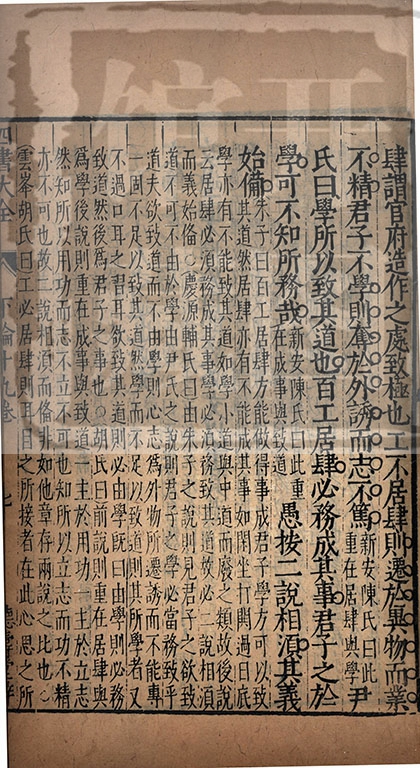 肆謂官府造作之處致極也工不居肆則遷於異物而業
不精君子不學則奪於外誘而志不篤新安陳氏曰此重在居肆與學尹
氏曰學所以致其道也百工居肆必務成其事君子之於
學可不知所務哉新安陳氏曰此重在成事與致道愚按二說相須其義
始備朱子曰百工居肆方能做得事成君子學方可以致
其道然居肆亦有不能成其事如閑坐打閧過日底
學亦有不能致其道如學小道與中道而廢之類故後說
云居肆必須務成其事學必須務致其道故必二說相須
而義始備○慶源輔氏曰由朱子之說則見君子之欲致
道不可不由於學由尹氏之說則君子之學必當務致乎
道夫欲致道而不由學則心志為外物所遷誘而不能專
一固不足以致其道然學而不足以致道則其所學者又
不過口耳之習耳欲致其道則必由學旣曰由學則必務
致道然後為君子之事也○胡氏曰前說則重在居肆與
為學後說則重在成事與致道一主於用功一主於立志
然知所以用功而志不立不可也知所以立志而功不精
亦不可也故二說相須而備非如他章存兩說之比也○
雲峯胡氏曰工必居肆則耳目之所接者在此心思之所
四書大全 下論十九卷 七